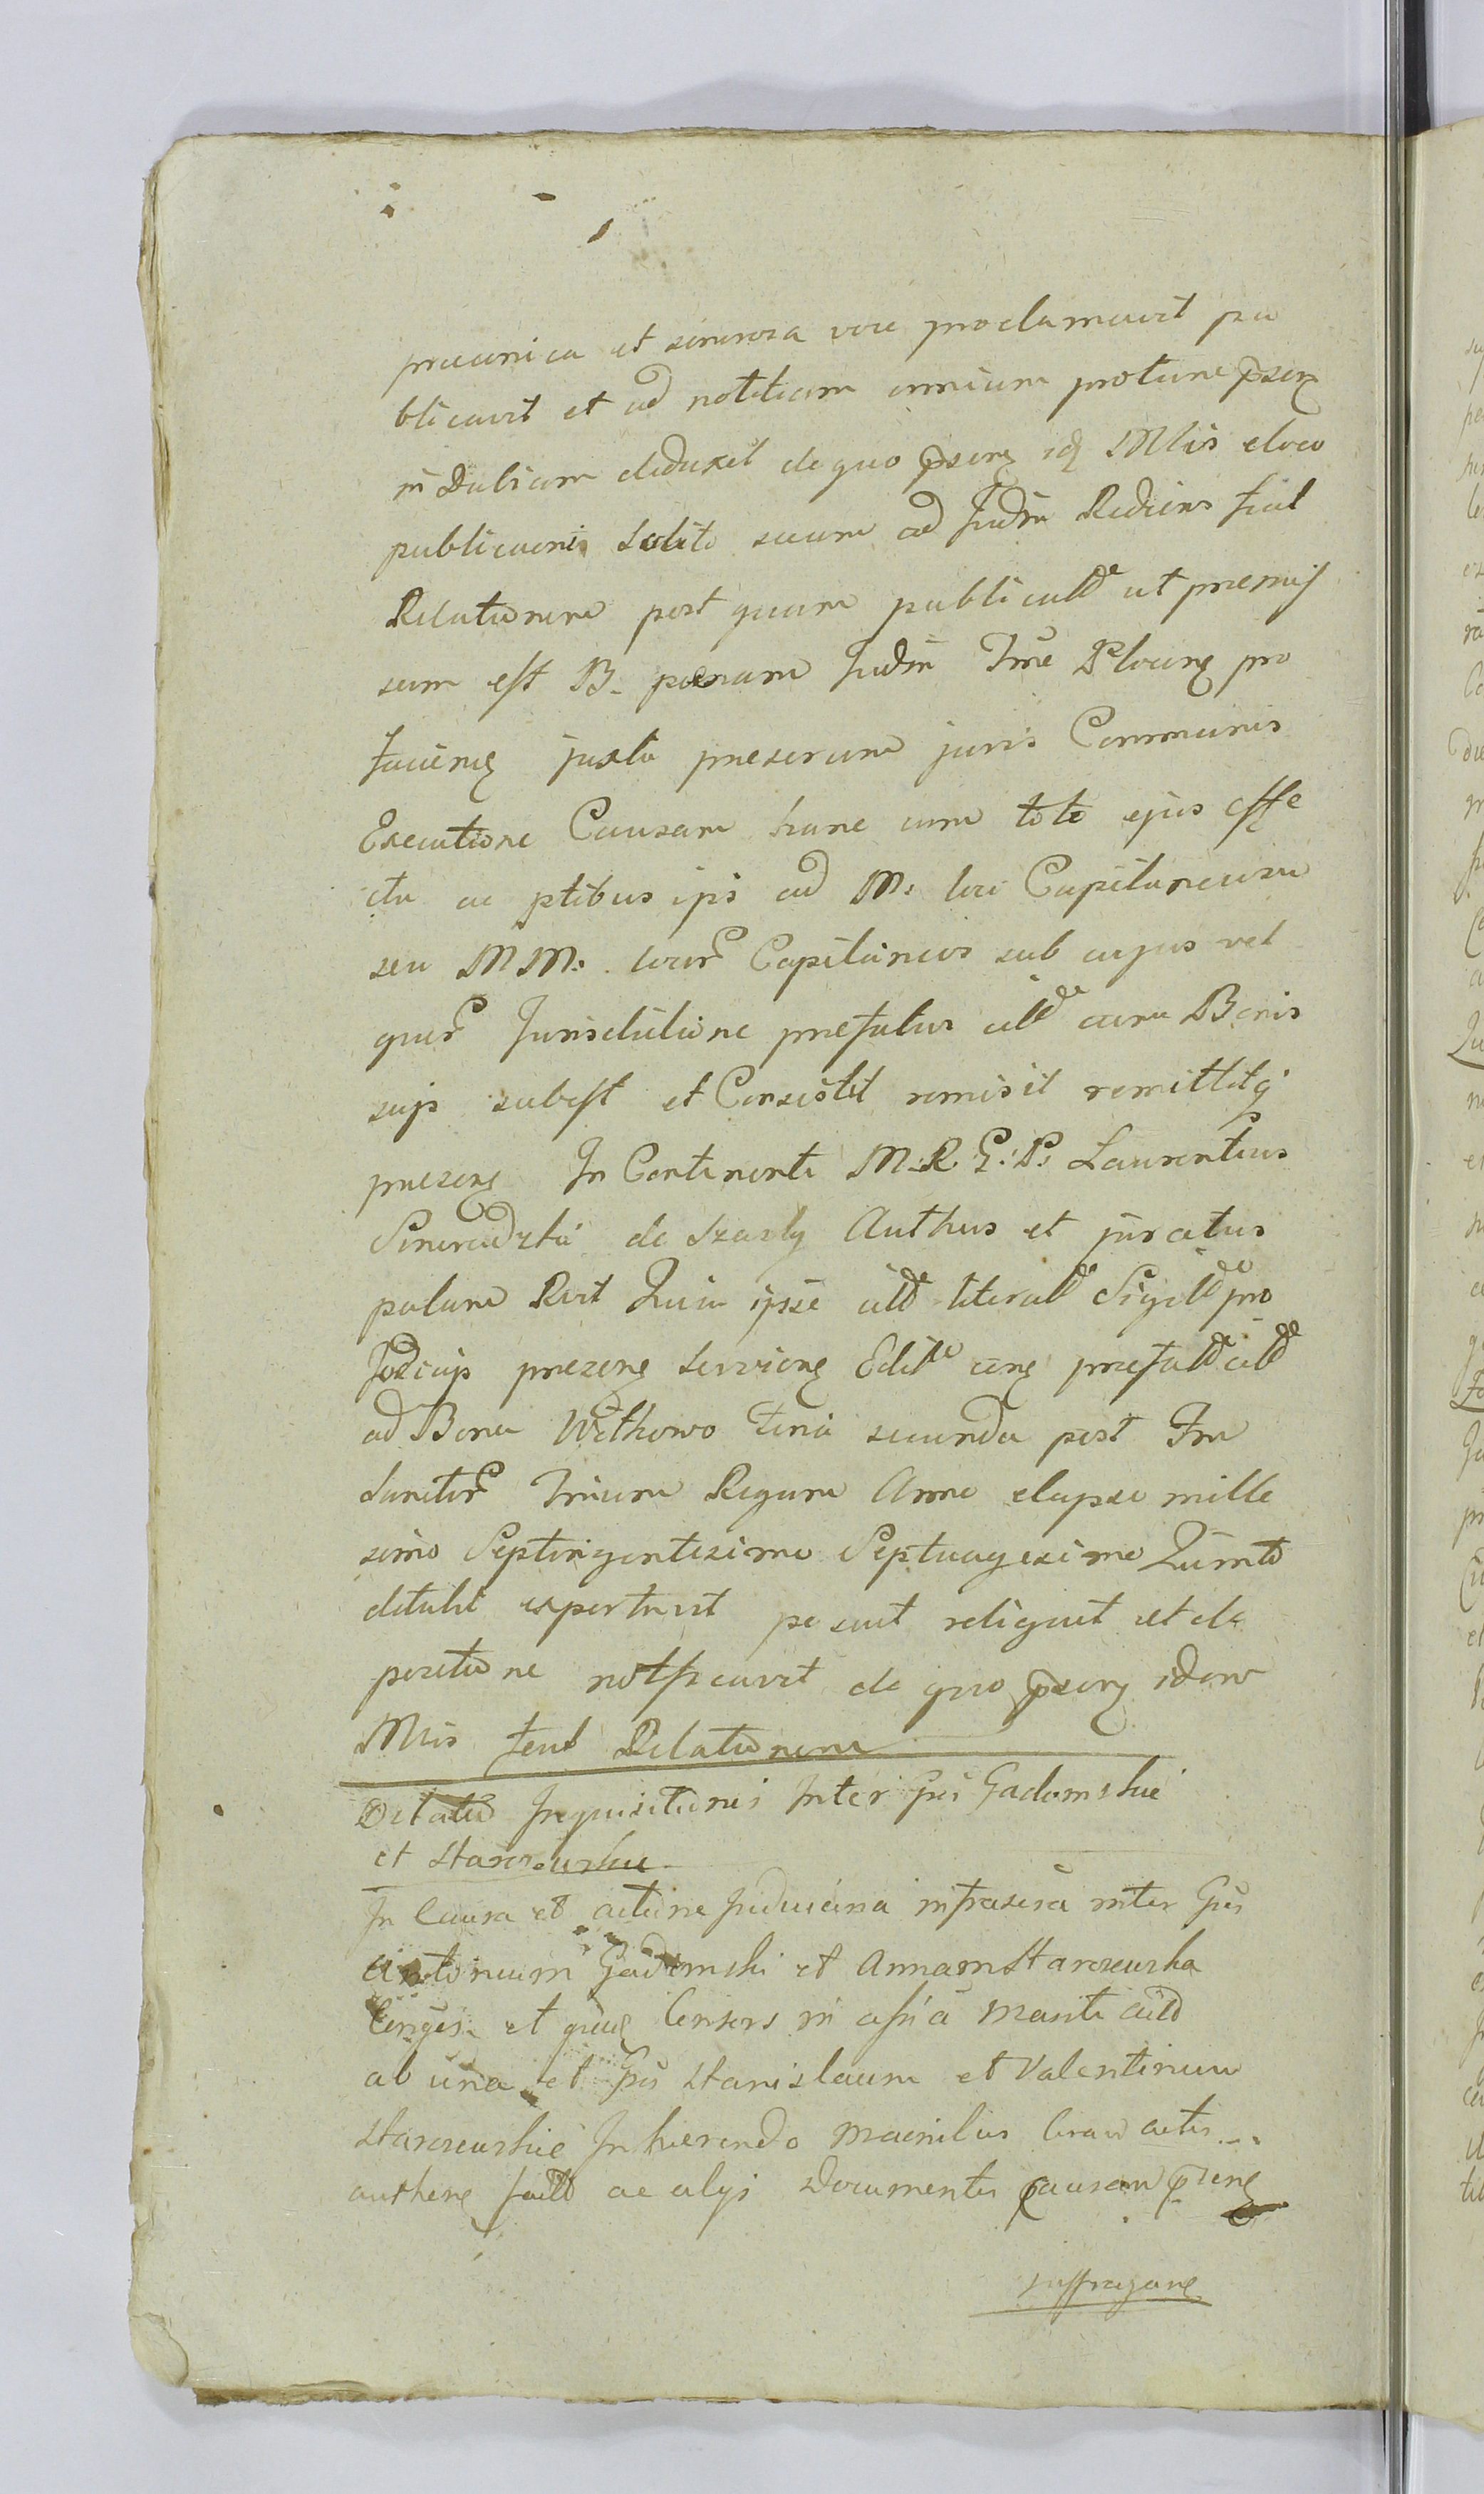 praeconica et sonorosa voce proclamavit pu
blicavit et ad notitiam omnium protunc psen
in Dubium deduxit de quo psens idq Mlis eloco
publicaonis solito suum ad Judm Rediens fecit
Relationem post quam publicatt ut premis
sum est B. poenam Judm pro
faciens juxta prescrum juris Communis
Executione Causam hanc cum toto ejus effe
ctu ac ptibus ipis ad M: loci Capitaneum
seu MM: locor Capitaneos sub cujus vel
quor Jurisditione prefatus citt cum Bonis
suis subest et Consistit remisit remittitq
presens In Continenti M: R. G: P: Laurentius
de Szasty Authus et juratus
palam Rvit Quia ipse citt literatt Sigitt pro
Judicijs presens serviens Editt cens prefatt citt
ad Bona Withowo feria secunda post Fm
Sanctor Trium Regum Anno elapso mille
simo Septingentesimo Septuagesimo Quinto
detulit exportavit posuit reliquit et de
positione notificavit de quo psens idem
Mlis fecit Relationem
Dilatio Inquisitionis Inter Gos Gadomskie
et Starorzewskie
In Causa et actione Judiciaria infrascra inter Gos
Antonium Gadomski et Annam Starorzewska
Conjges et quae Consors in assia Mariti citt
ab una et Gos Stanislaum et Valentinum
Starorzewskie Inhaerendo actis
authene ac alijs Documentis causam psens
suffragans